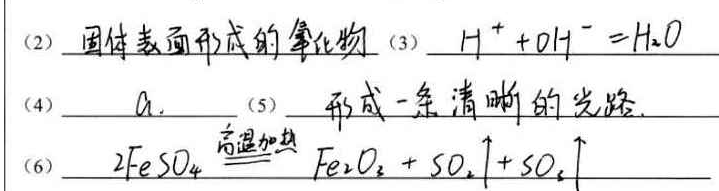 (2) 固体表面形成的氧化物 (3) H⁺+OH⁻=H₂O
(4) a. (5) 形成一条清晰的光路.
(6) 2FeSO₄ 高温加热 ══ Fe₂O₃ + SO₂↑ + SO₃↑